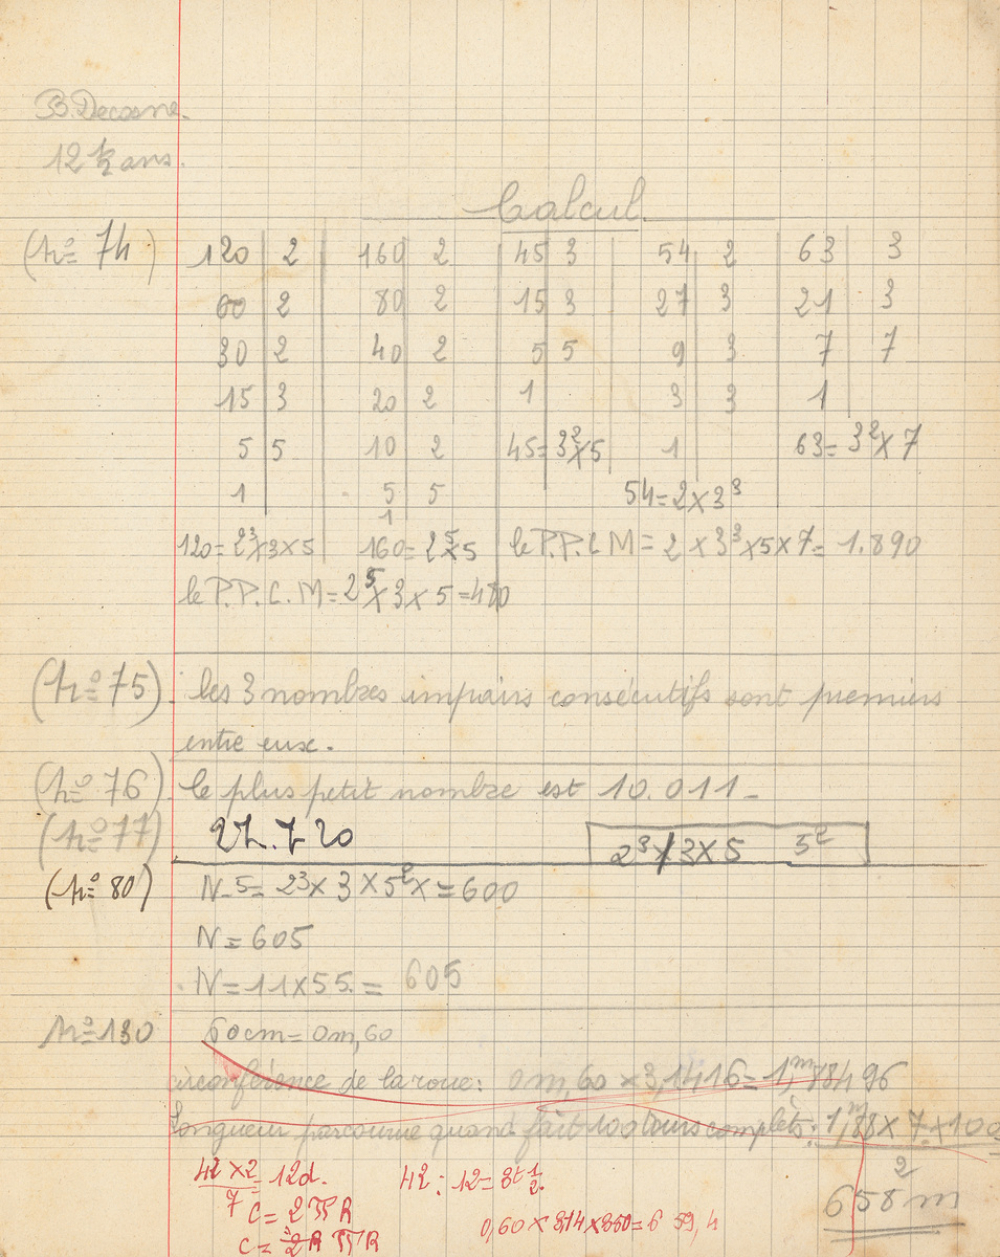 B. Decosne.
12 ½ ans.
Calcul
(n° 74) 120 | 2 160 | 2 45 | 3 54 | 2 63 | 3
60 | 2 80 | 2 15 | 3 27 | 3 21 | 3
30 | 2 40 | 2 5 | 5 9 | 3 7 | 7
15 | 3 20 | 2 1 3 | 3 1
5 | 5 10 | 2 45 = 3² × 5 1 63 = 3² × 7
1 5 | 5 54 = 2 × 3³
1
120 = 2³ × 3 × 5 160 = 2⁵ × 5 le P.P.C M = 2 × 3³ × 5 × 7 = 1.890
le P.P.C.M = 2⁵ × 3 × 5 = 480
(n° 75). les 3 nombres impairs consécutifs sont premiers
entre eux.
(n° 76). le plus petit nombre est 10.011 -
(n° 77) 2³ × 3 × 5 5²
(n° 80) N - 5 = 2³ × 3 × 5² × = 600
N = 605
N = 11 × 55. = 605
N° 130 60 cm = 0m,60
circonférence de la roue : 0m,60 × 3,1416 = 1,ᵐ88496
Longueur parcourue quand fait 100 tours complets : 1,ᵐ88 × 7 × 100
2
658 m
42 × 2 / 7 = 12 d. 42 : 12 = 3 t ½.
C = 2 π R
C = 2 R π R
0,60 × 3,14 × 350 = 6 59,4